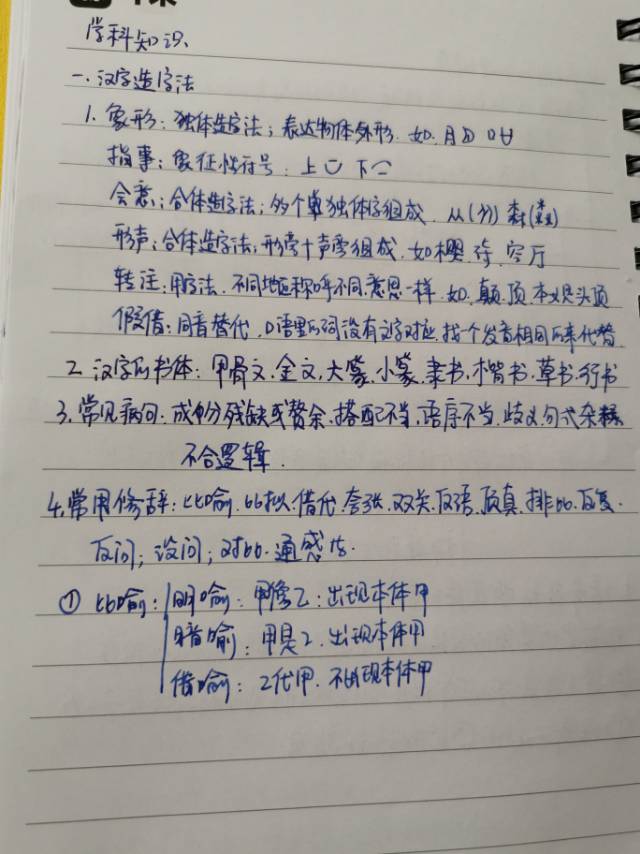 学科知识
一.汉字造字法
1.象形:独体造字法;表达物体外形.如.月 日
指事:象征性符号.上 下
会意:合体造字法;多个单独体字组成.从(分) 森(森)
形声:合体造字法;形旁+声旁组成.如樱.客.厅
转注:用字法.不同地区称呼不同,意思一样.如.颠.顶 本义是头顶
假借:同音替代.口语里的词没有文字对应.找个发音相同的来代替
2.汉字的书体:甲骨文.金文.大篆.小篆.隶书.楷书.草书.行书
3.常见病句:成份残缺或赘余.搭配不当.语序不当.歧义.句式杂糅
不合逻辑.
4.常用修辞:比喻.比拟.借代.夸张.双关.反语.顶真.排比.反复
反问;设问;对比.通感
① 比喻:明喻:甲像乙:出现本体甲
暗喻:甲是乙.出现本体甲
借喻:乙代甲.不出现本体甲